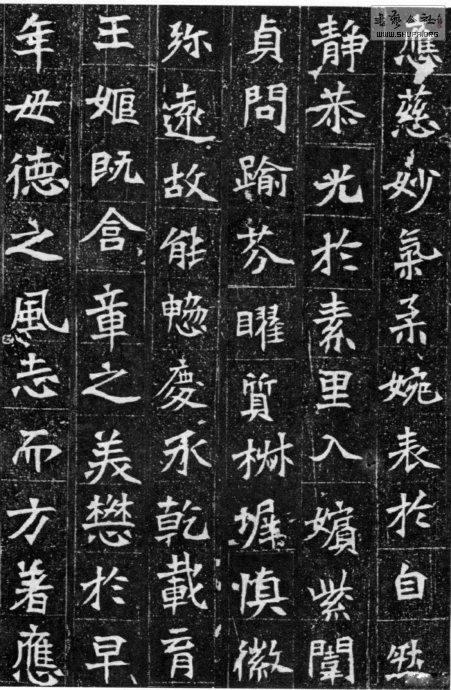 應慈妙氣柔婉表於自然
靜恭光於素里入嬪紫闈
貞問踰芬曜質椒墀慎徽
弥遠故能慶承乾載育
王姬既含章之美懋於早
年毋德之風志而方著應
書藝公社
WWW.SHUFA.ORG